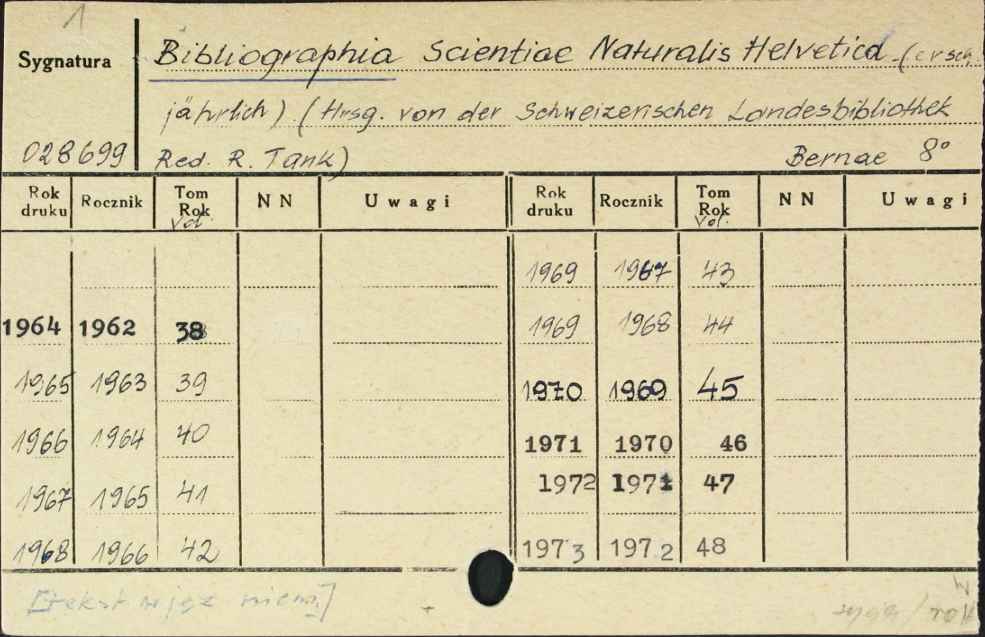 1
Sygnatura
Bibliographia Scientiae Naturalis Helvetica (ersch.
jährlich) (Hrsg. von der Schweizerischen Landesbibliothek
028699 Red. R. Tank) Bernae 8°
Rok druku Rocznik Tom Rok Vol. NN Uwagi Rok druku Rocznik Tom Rok Vol. NN Uwagi
1969 1967 43
1964 1962 38 1969 1968 44
1965 1963 39 1970 1969 45
1966 1964 40 1971 1970 46
1967 1965 41 1972 1971 47
1968 1966 42 1973 1972 48
[tekst w jęz. niem.]